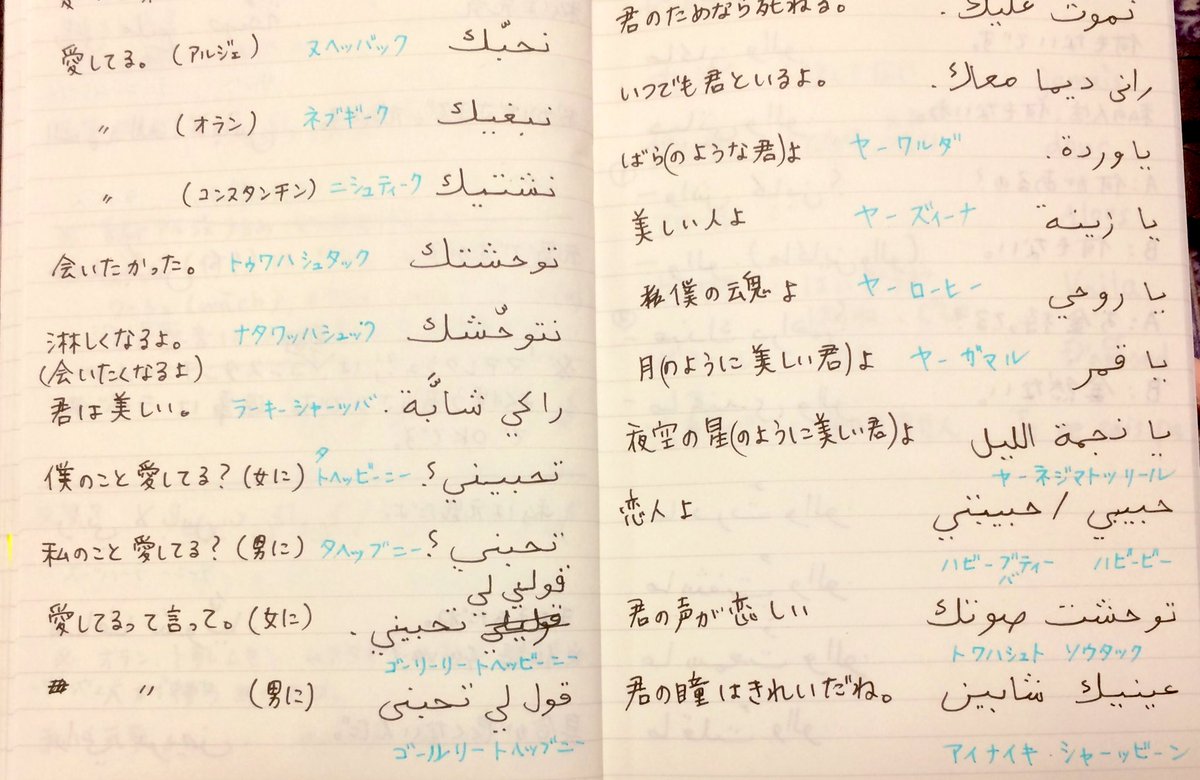 愛してる。(アルジェ) ヌヘッバック نحبّك
〃 (オラン) ネブギーク نبغيك
〃 (コンスタンチン) ニシュティーク نشتيك
会いたかった。 トゥワハシュタック توحشتك
淋しくなるよ。 ナタワッハシュック نتوحّشك
(会いたくなるよ)
君は美しい。 ラーキーシャーッバ راكي شابّة.
タ
僕のこと愛してる?(女に) トヘッビーニー تحبيني؟
私のこと愛してる?(男に) タヘッブニー تحبني؟
قوليلي لي
愛してるって言って。(女に) تحبيني.
ゴーリーリートヘッビーニー
〃 (男に) قول لي تحبني
ゴールリートヘッブニー
君のためなら死ねる。 نموت عليك.
いつでも君といるよ。 راني ديما معاك.
ばら(のような君)よ ヤーワルダ يا وردة.
美しい人よ ヤーズィーナ يا زينة
僕の魂よ ヤーローヒー يا روحي
月(のように美しい君)よ ヤーガマル يا قمر
夜空の星(のように美しい君)よ يا نجمة الليل
ヤーネジマトッリール
恋人よ حبيبي / حبيبتي
ハビーブティー ハビービー
バ
君の声が恋しい توحشت صوتك
トワハシュト ソウタック
君の瞳はきれいだね。 عينيك شابين
アイナイキ・シャーッビーン